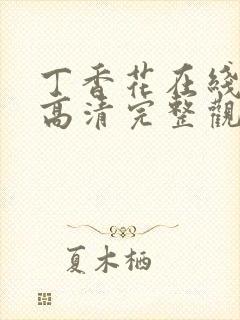 丁香花在綫
高清完整觀
夏木栖